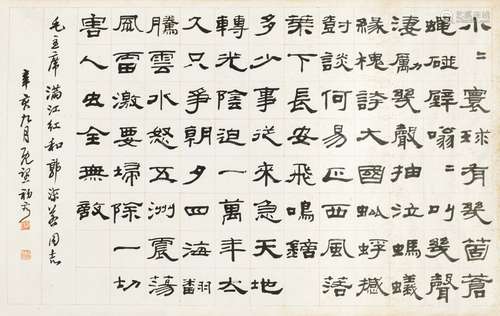 小〻寰球有幾箇蒼
蠅碰壁嗡〻叫幾聲
淒厲幾聲抽泣螞蟻
緣槐誇大國蚍蜉撼
樹談何易正西風落
葉下長安飛鳴鏑
多少事從來急天地
轉光陰迫一萬年太
久只爭朝夕四海翻
騰雲水怒五洲震蕩
風雷激要掃除一切
害人虫全無敵
毛主席滿江紅和郭沫若同志
辛亥九月